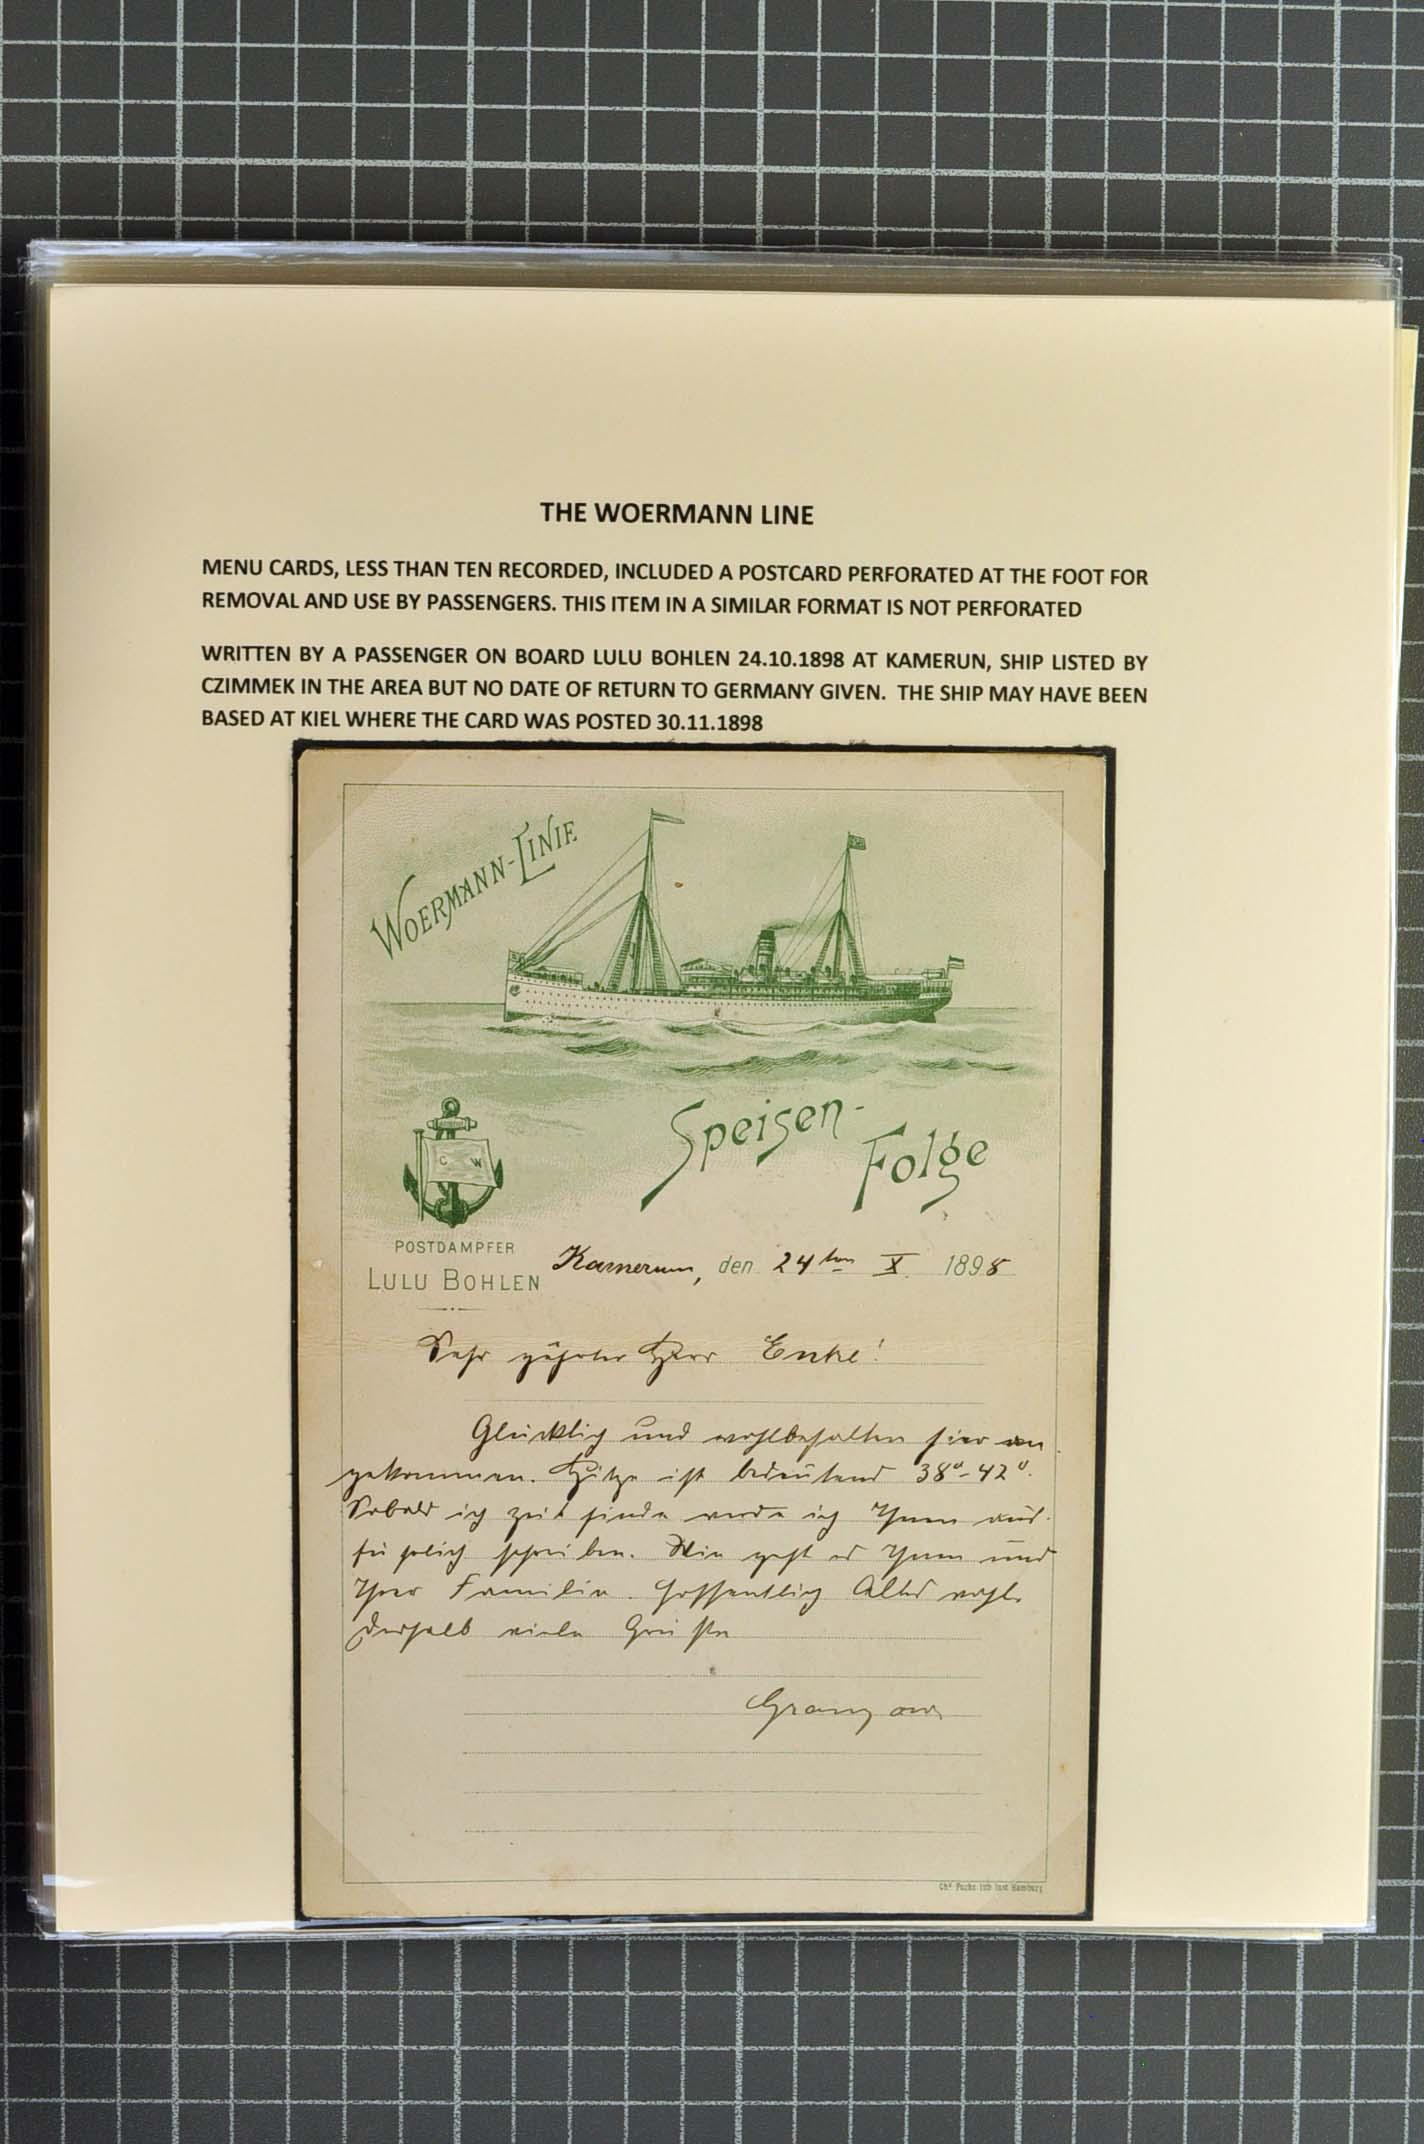 THE WOERMANN LINE
MENU CARDS, LESS THAN TEN RECORDED, INCLUDED A POSTCARD PERFORATED AT THE FOOT FOR
REMOVAL AND USE BY PASSENGERS. THIS ITEM IN A SIMILAR FORMAT IS NOT PERFORATED
WRITTEN BY A PASSENGER ON BOARD LULU BOHLEN 24.10.1898 AT KAMERUN, SHIP LISTED BY
CZIMMEK IN THE AREA BUT NO DATE OF RETURN TO GERMANY GIVEN. THE SHIP MAY HAVE BEEN
BASED AT KIEL WHERE THE CARD WAS POSTED 30.11.1898
WOERMANN-LINIE
Speisen-
Folge
C W
POSTDAMPFER
LULU BOHLEN
Kamerun, den 24ten X. 1898
Sehr geehrter Herr Enke!
Glücklich und wohlbehalten hier an
gekommen. Hitze ist bedeutend 38°-42°.
Sobald ich Zeit finde werde ich Ihnen aus-
führlich schreiben. Wie geht es Ihnen und
Ihrer Familie. Hoffentlich Alles wohl.
Deshalb viele Grüße
Granzow
Chs Fuchs lith Inst Hamburg